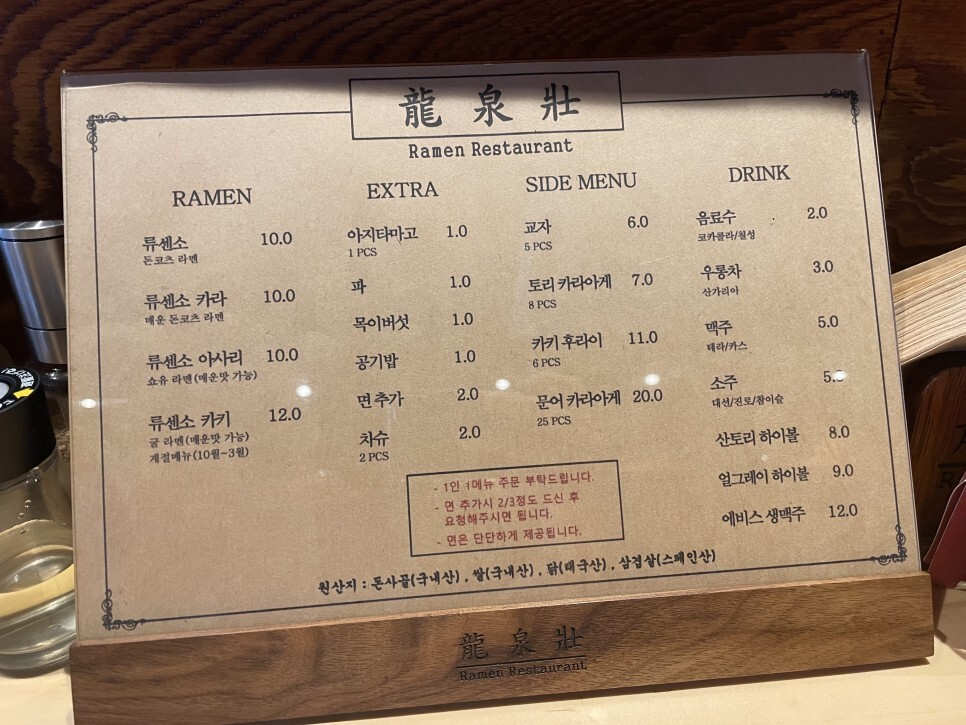 龍泉壯
Ramen Restaurant
RAMEN
류센소 10.0
돈코츠 라멘
류센소 카라 10.0
매운 돈코츠 라멘
류센소 아사리 10.0
쇼유 라멘(매운맛 가능)
류센소 카키 12.0
굴 라멘(매운맛 가능)
계절메뉴(10월~3월)
EXTRA
아지타마고 1.0
1 PCS
파 1.0
목이버섯 1.0
공기밥 1.0
면 추가 2.0
차슈 2.0
2 PCS
SIDE MENU
교자 6.0
5 PCS
토리 카라아게 7.0
8 PCS
카키 후라이 11.0
6 PCS
문어 카라아게 20.0
25 PCS
DRINK
음료수 2.0
코카콜라/칠성
우롱차 3.0
산가리아
맥주 5.0
테라/카스
소주 5.0
대선/진로/참이슬
산토리 하이볼 8.0
얼그레이 하이볼 9.0
에비스 생맥주 12.0
- 1인 1메뉴 주문 부탁드립니다.
- 면 추가시 2/3정도 드신 후
요청해주시면 됩니다.
- 면은 단단하게 제공됩니다.
원산지 : 돈사골(국내산) , 쌀(국내산) , 닭(태국산) , 삼겹살(스페인산)
龍泉壯
Ramen Restaurant